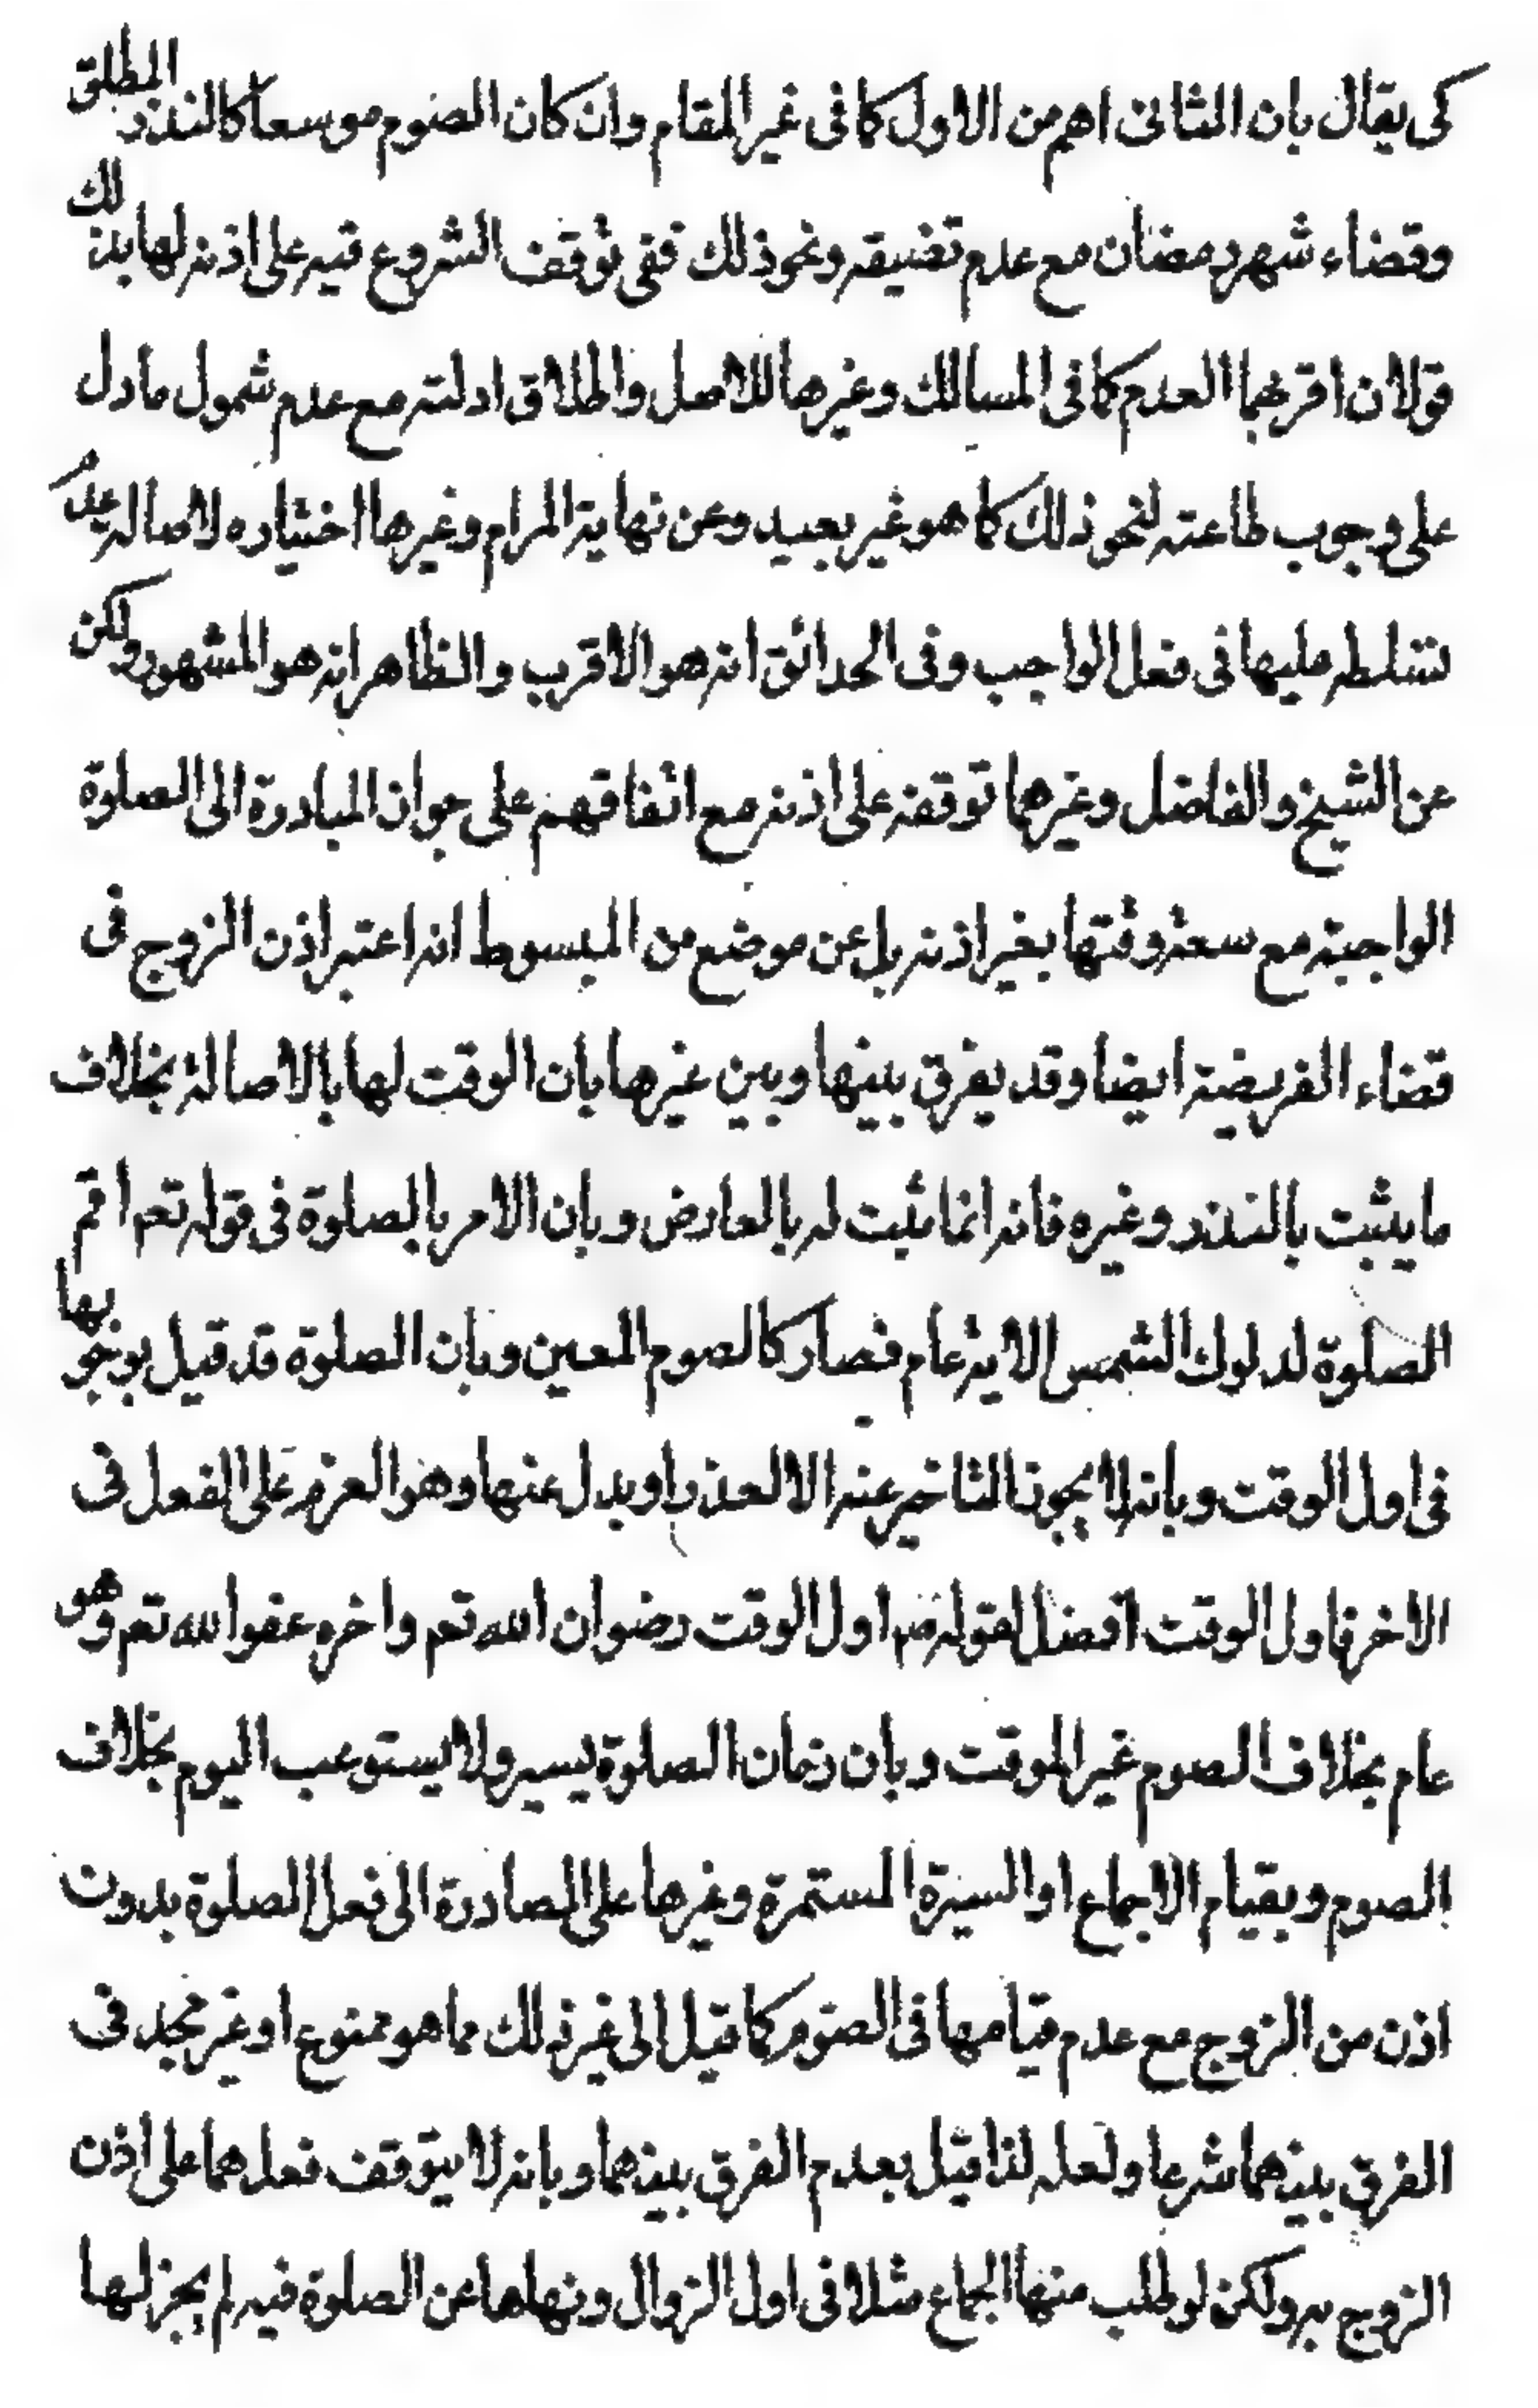 كى يقال بان الثانى اهم من الاول كما فى غير المقام وان كان الصوم موسعا كالنذر المطلق
وقضاء شهر رمضان مع عدم تضيقه ونحو ذلك ففى توقف الشروع فيه على اذنه لها بذلك
قولان اقربهما العدم كما فى المسالك وغيرها للاصل واطلاق ادلته مع عدم شمول ما دل
على وجوب طاعته لنحو ذلك كما هو غير بعيد وعن نهاية المرام وغيرها اختياره لاصالة عدم
تسلطه عليها فى فعل الواجب وفى الحدائق انه هو الاقرب والظاهر انه هو المشهور ولكن
عن الشيخ والفاضل وغيرهما توقفه على اذنه مع اتفاقهم على جواز المبادرة الى الصلوة
الواجبة مع سعة وقتها بغير اذنه بل عن موضع من المبسوط انه اعتبر اذن الزوج فى
قضاء الفريضة ايضا وقد يفرق بينها وبين غيرها بان الوقت لها بالاصالة بخلاف
ما يثبت بالنذر وغيره فانه انما ثبت له بالعارض وبان الامر بالصلوة فى قوله تعم اقم
الصلوة لدلوك الشمس الاية عام فصار كالصوم المعين وبان الصلوة قد قيل بوجوبها
فى اول الوقت وبانه لا يجوز التاخير عنه الا لعذر او بدل عنها وهو العزم على الفعل فى
الاخر فاول الوقت افضل لقوله صم اول الوقت رضوان الله تعم واخره عفو الله تعم وهو
عام بخلاف الصوم غير الموقت وبان زمان الصلوة يسير ولا يستوعب اليوم بخلاف
الصوم وبقيام الاجماع او السيرة المستمرة وغيرها على المصادرة الى فعل الصلوة بدون
اذن من الزوج مع عدم قيامها فى الصوم كما قيل الى غير ذلك مما هو ممنوع او غير مجد فى
الفرق بينهما شرعا ولعله لذا قيل بعدم الفرق بينهما وبانه لا يتوقف فعلهما على اذن
الزوج به ولكن لو طلب منها الجماع مثلا فى اول الزوال ونهاها عن الصلوة فيه لم يجز لها